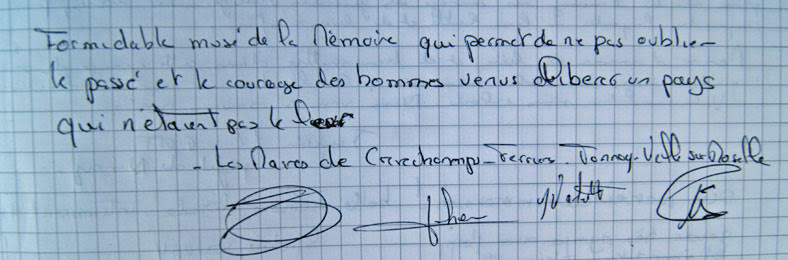 Formidable musé de la Mémoire qui permet de ne pas oublier
le passé et le courage des hommes venus libérer un pays
qui n'étaient pas le leur
- Les Maires de Crezechamps - Terrues - Tonnoy - Velle sur Moselle